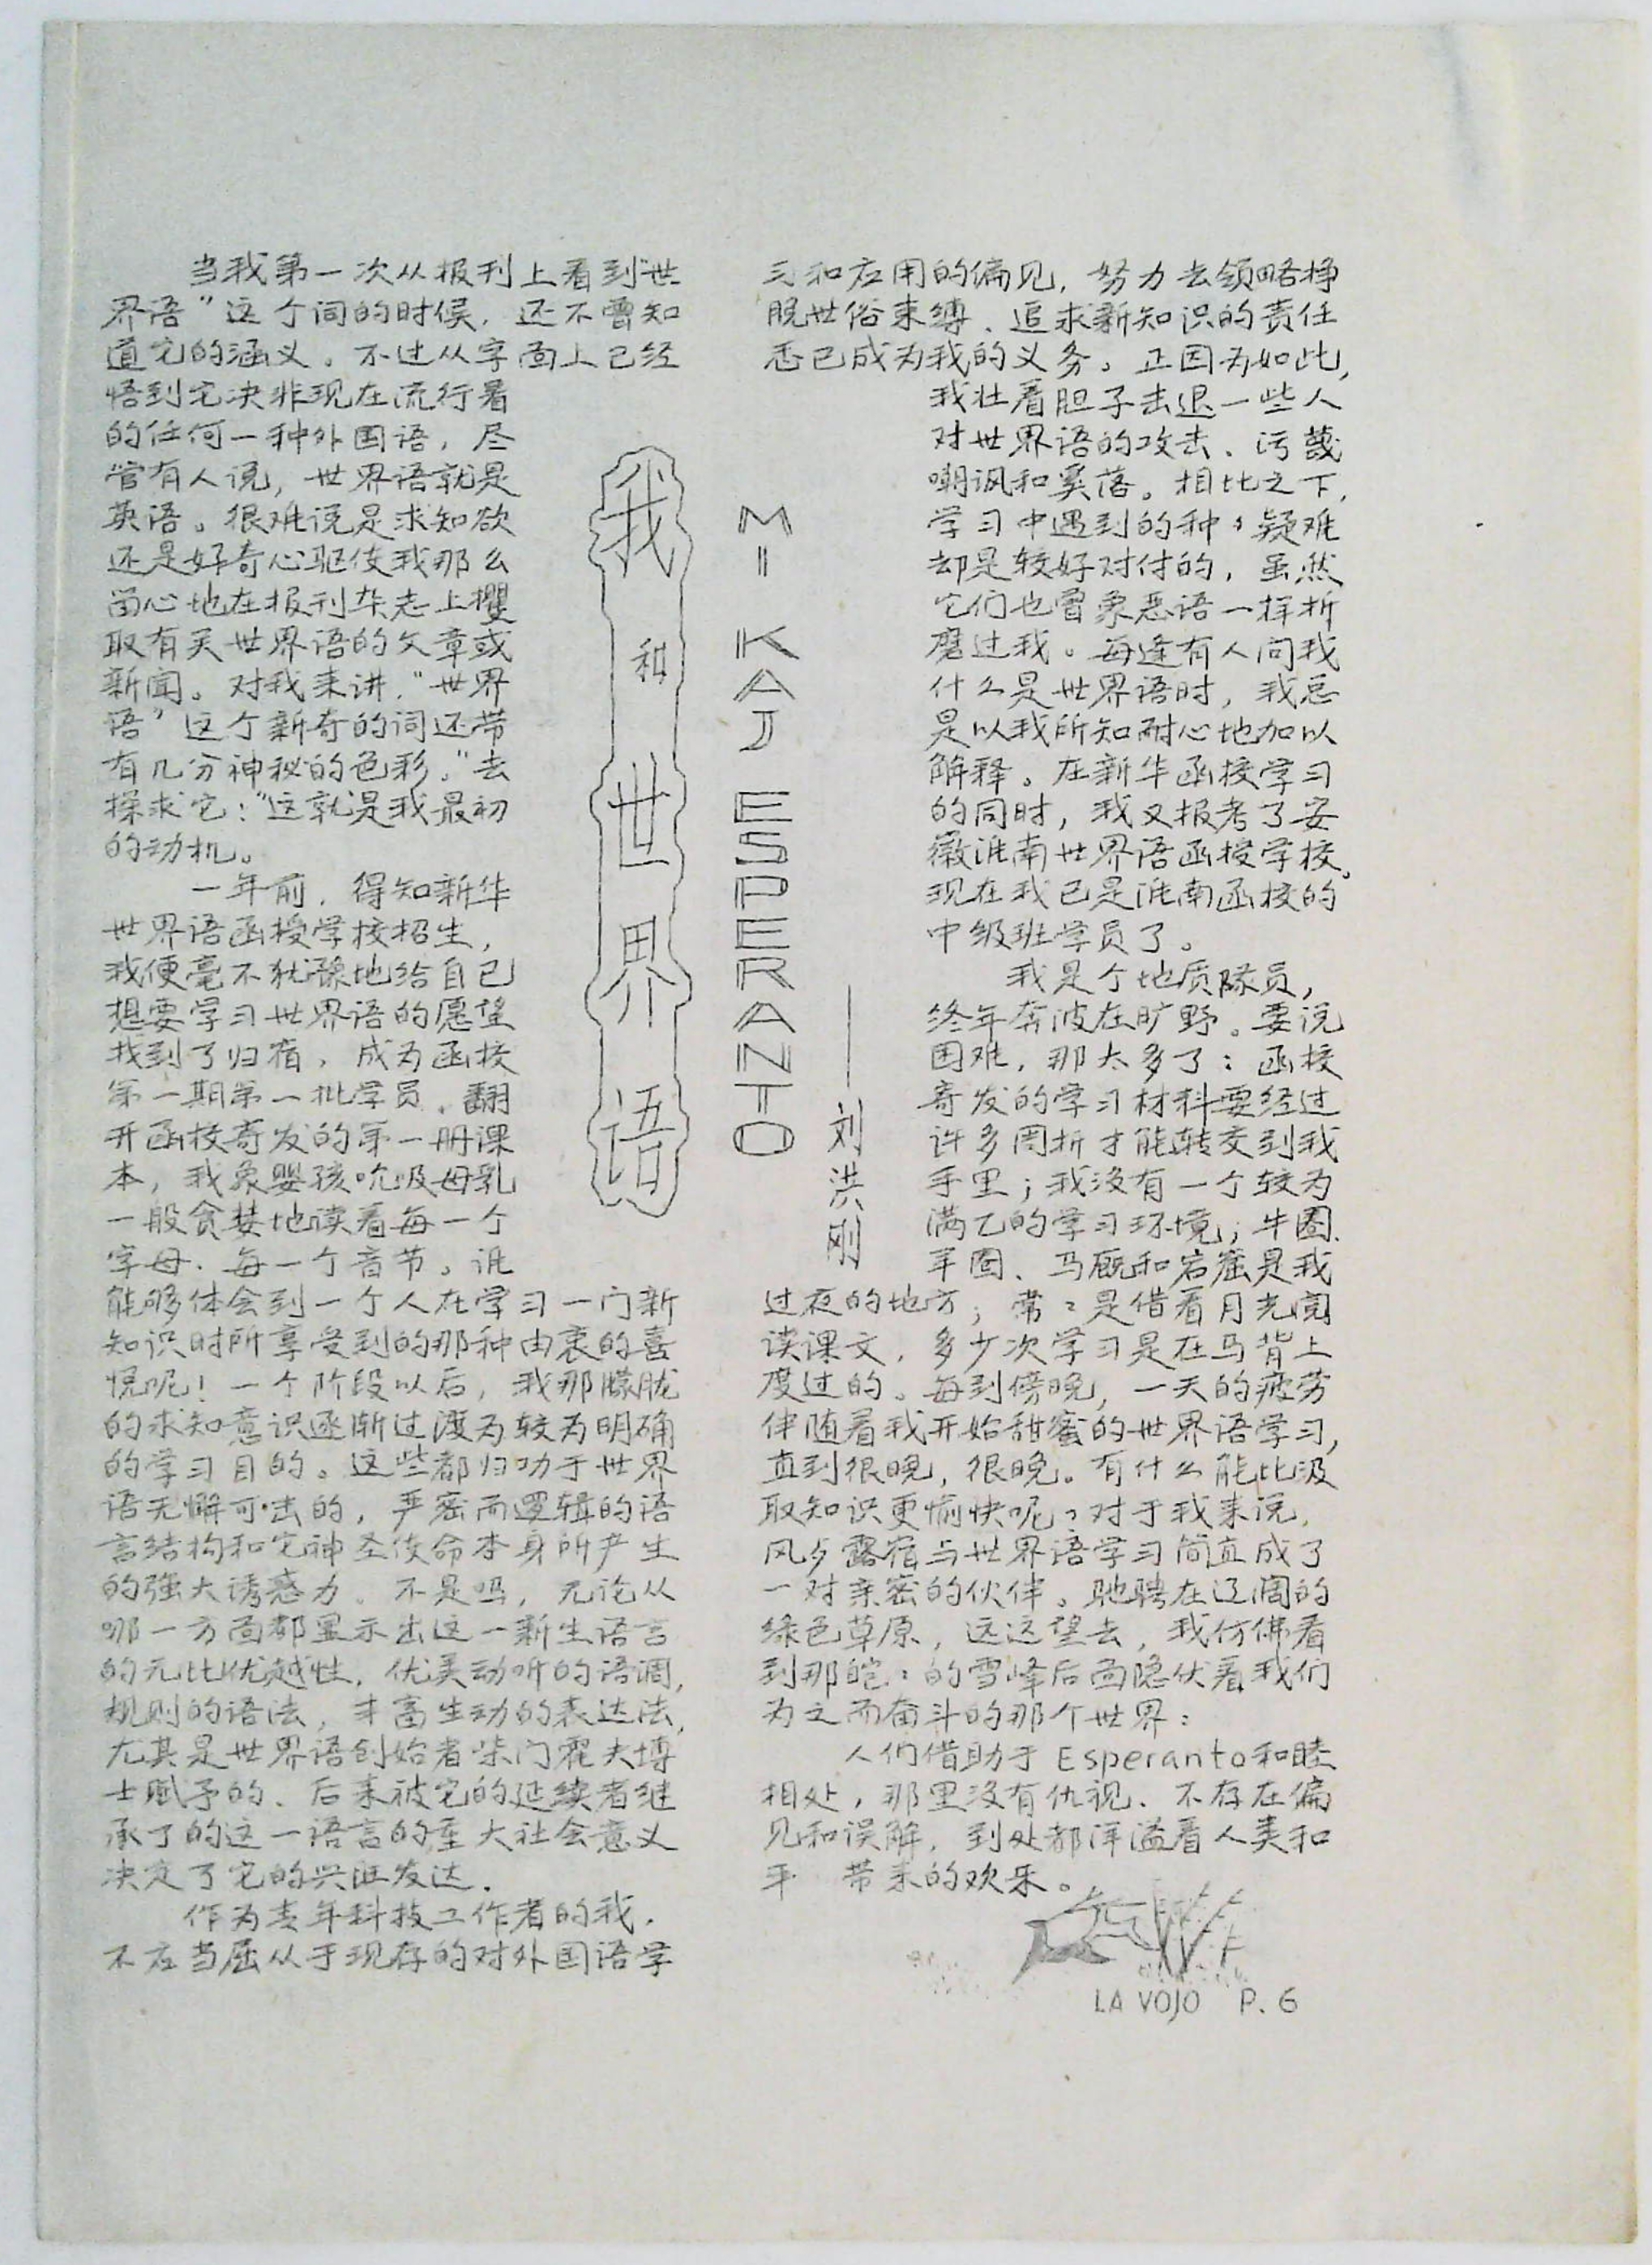 我和世界语
MI KAJ ESPERANTO
——刘洪刚
当我第一次从报刊上看到“世
界语”这个词的时候，还不曾知
道它的涵义。不过从字面上已经
悟到它决非现在流行着
的任何一种外国语，尽
管有人说，世界语就是
英语。很难说是求知欲
还是好奇心驱使我那么
留心地在报刊杂志上攫
取有关世界语的文章或
新闻。对我来讲，“世界
语”这个新奇的词还带
有几分神秘的色彩。“去
探求它：”这就是我最初
的动机。
一年前，得知新华
世界语函授学校招生，
我便毫不犹豫地给自己
想要学习世界语的愿望
找到了归宿，成为函校
第一期第一批学员。翻
开函校寄发的第一册课
本，我象婴孩吮吸母乳
一般贪婪地读着每一个
字母、每一个音节。谁
能够体会到一个人在学习一门新
知识时所享受到的那种由衷的喜
悦呢！一个阶段以后，我那朦胧
的求知意识逐渐过渡为较为明确
的学习目的。这些都归功于世界
语无懈可击的，严密而逻辑的语
言结构和它神圣使命本身所产生
的强大诱惑力。不是吗，无论从
哪一方面都显示出这一新生语言
的无比优越性，优美动听的语调，
规则的语法，丰富生动的表达法，
尤其是世界语创始者柴门霍夫博
士赋予的、后来被它的延续者继
承了的这一语言的重大社会意义
决定了它的兴旺发达．
作为青年科技工作者的我，
不应当屈从于现存的对外国语学
习和应用的偏见，努力去领略挣
脱世俗束缚、追求新知识的责任
悉已成为我的义务。正因为如此，
我壮着胆子击退一些人
对世界语的攻击、污蔑
嘲讽和奚落。相比之下，
学习中遇到的种々疑难
却是较好对付的，虽然
它们也曾象恶语一样折
磨过我。每逢有人问我
什么是世界语时，我总
是以我所知耐心地加以
解释。在新华函校学习
的同时，我又报考了安
徽淮南世界语函授学校。
现在我已是淮南函校的
中级班学员了。
我是个地质队员，
终年奔波在旷野。要说
困难，那太多了：函校
寄发的学习材料要经过
许多周折才能转交到我
手里；我没有一个较为
满乙的学习环境；牛圈、
羊圈、马厩和岩窟是我
过夜的地方；常々是借着月光阅
读课文，多少次学习是在马背上
度过的。每到傍晚，一天的疲劳
伴随着我开始甜蜜的世界语学习，
直到很晚，很晚。有什么能比汲
取知识更愉快呢？对于我来说，
风歺露宿与世界语学习简直成了
一对亲密的伙伴。驰骋在辽阔的
绿色草原，远远望去，我仿佛看
到那皑々的雪峰后面隐伏着我们
为之而奋斗的那个世界：
人们借助于 Esperanto和睦
相处，那里没有仇视、不存在偏
见和误解，到处都洋溢着人类和
平 带来的欢乐。
LA VOJO P. 6